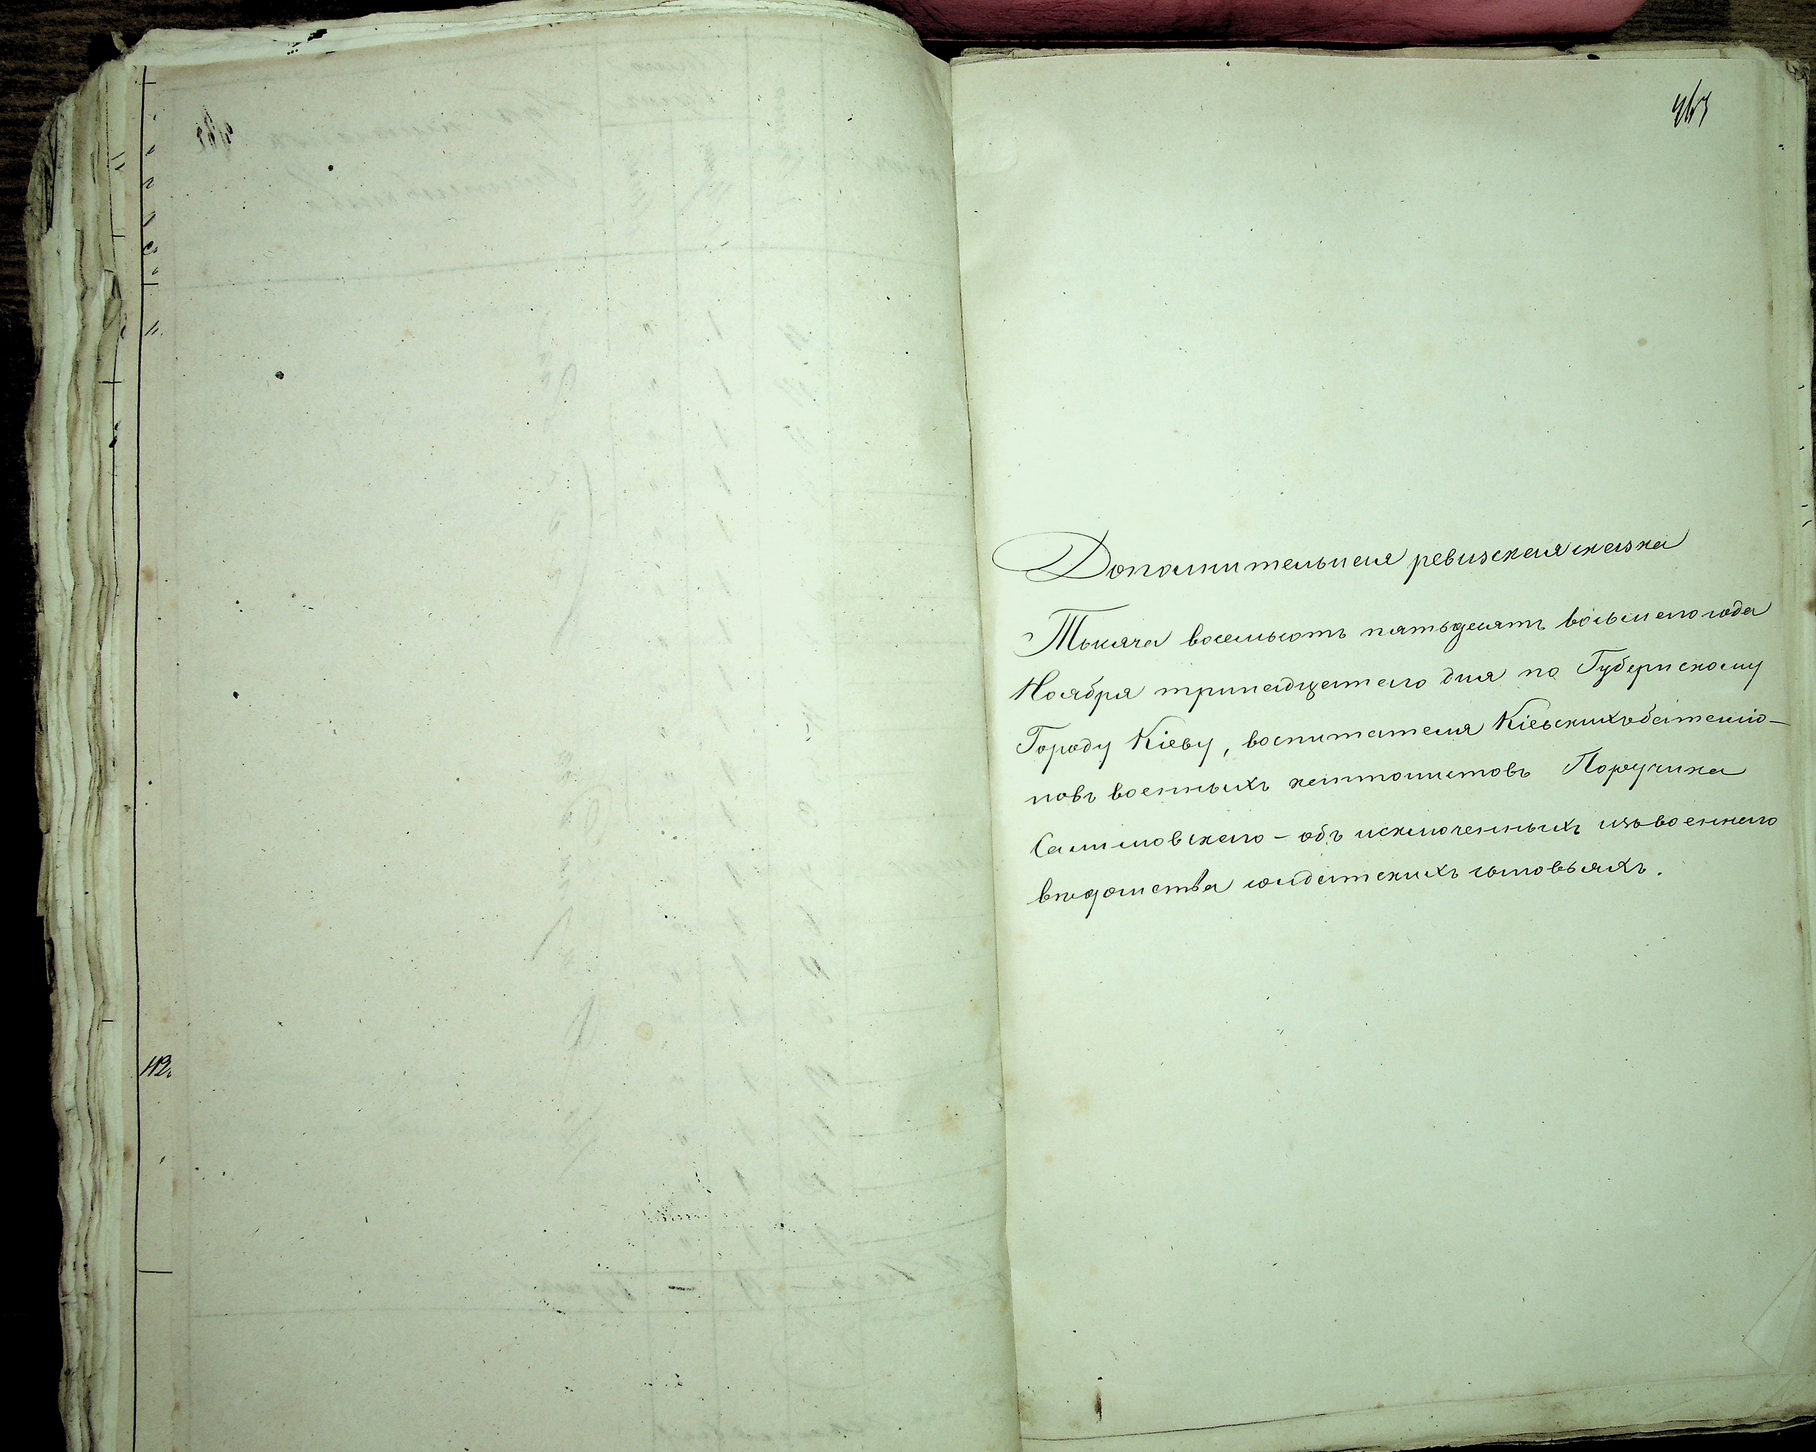 463
Дополнительная ревизская сказка
Тысяча восемьсотъ пятьдесятъ восьмаго года
Ноября тринадцатаго дня по Губернскому
Городу Кіеву, воспитателя Кіевскихъ баталіо-
новъ военныхъ кантонистовъ Поручика
Салиловскаго – объ исключенныхъ изъ военнаго
вѣдомства солдатскихъ сыновьяхъ.